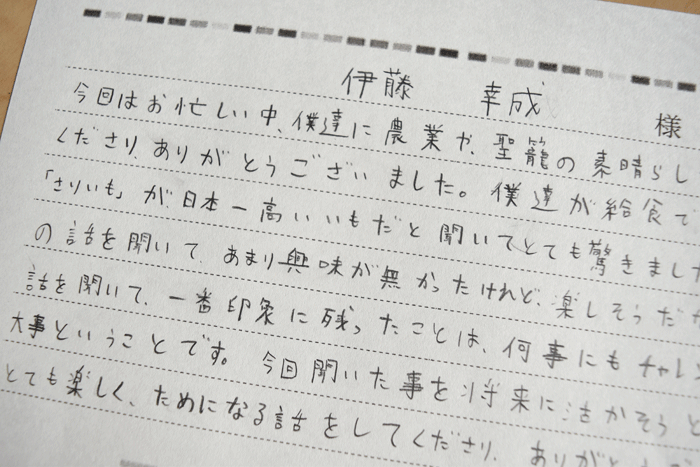 伊藤 幸成 様
今回はお忙しい中、僕達に農業や、聖籠の素晴らし
くださり、ありがとうございました。僕達が給食で
「さりいも」が日本一高いいもだと聞いてとても驚きまし
の話を聞いて、あまり興味が無かったけれど、楽しそうだ
話を聞いて、一番印象に残ったことは、何事にもチャレン
大事ということです。今回聞いた事を将来に活かそうと
とても楽しく、ためになる話をしてくださり、ありがと